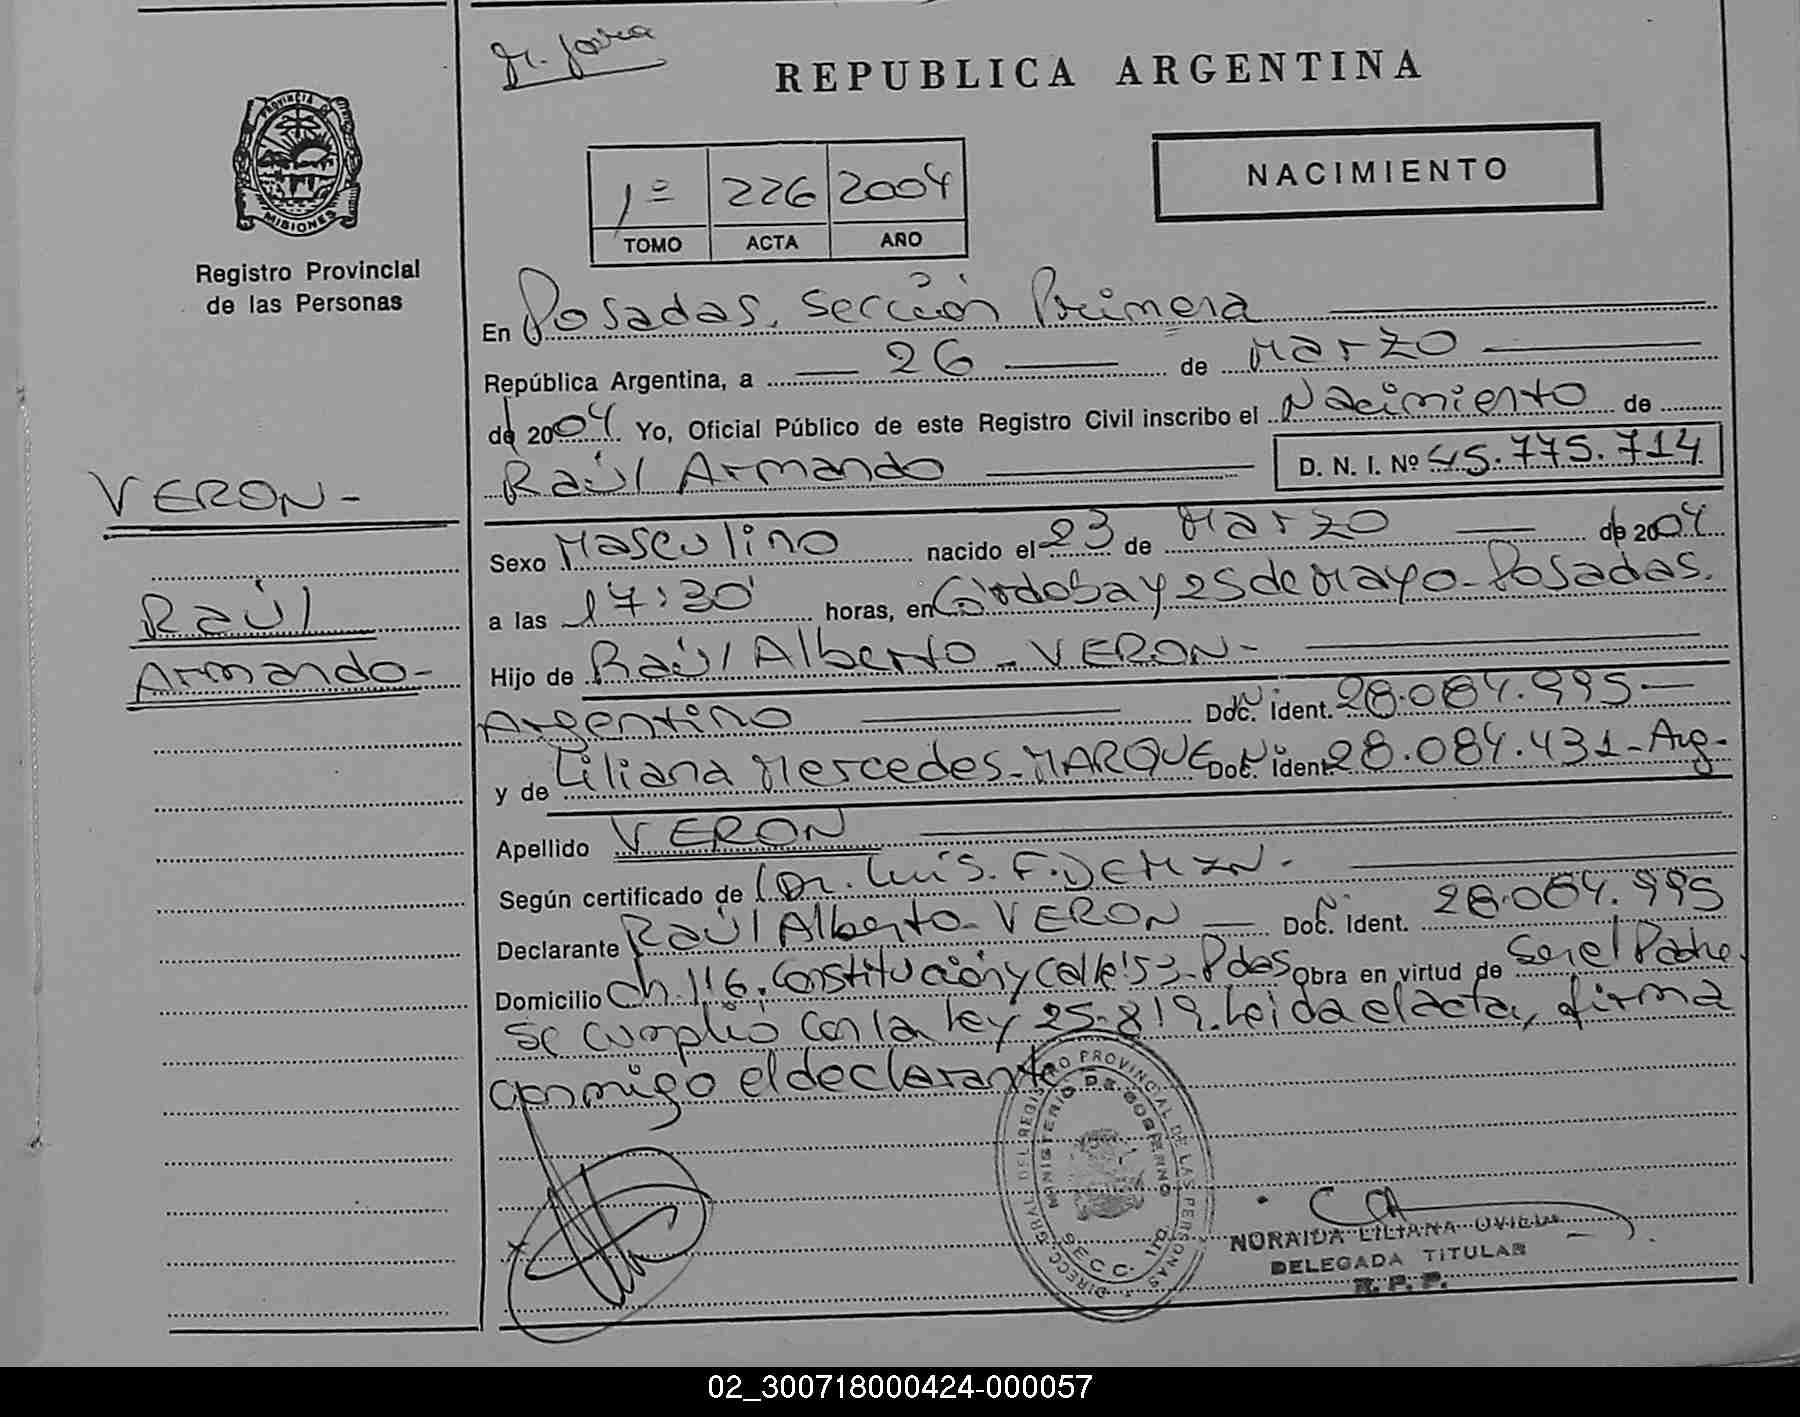 REPUBLICA ARGENTINA
NACIMIENTO
1º 226 2004
TOMO ACTA AÑO
PROVINCIA DE MISIONES
Registro Provincial
de las Personas
VERON-
Raúl
Armando-
En Posadas, sección Primera
República Argentina, a 26 de Marzo
de 2004 Yo, Oficial Público de este Registro Civil inscribo el Nacimiento de
Raúl Armando D. N. I. Nº 45.775.714
Sexo Masculino nacido el 23 de Marzo de 2004
a las 17:30' horas, en Córdoba y 25 de Mayo - Posadas.
Hijo de Raúl Alberto - VERON -
Argentino Doc. Ident. 28.084.995 —
y de Liliana Mercedes - MARQUE Doc. Ident. 28.084.431 - Arg -
Apellido VERON
Según certificado de Dr. Luis. F.
Declarante Raúl Alberto - VERON — Doc. Ident. 28.084.995
Domicilio Ch. 116. Constitución y Calle 53 - Pdas Obra en virtud de Ser el Padre.
Se cumplió con la ley 25.819. Leida el acta, firma
conmigo el declarante
DIRECC. GRAL. DEL REGISTRO PROVINCIAL DE LAS PERSONAS
MINISTERIO DE GOBIERNO
SECC. 1ra
NORAIDA LILIANA
DELEGADA TITULAR
R. P. P.
02_300718000424-000057